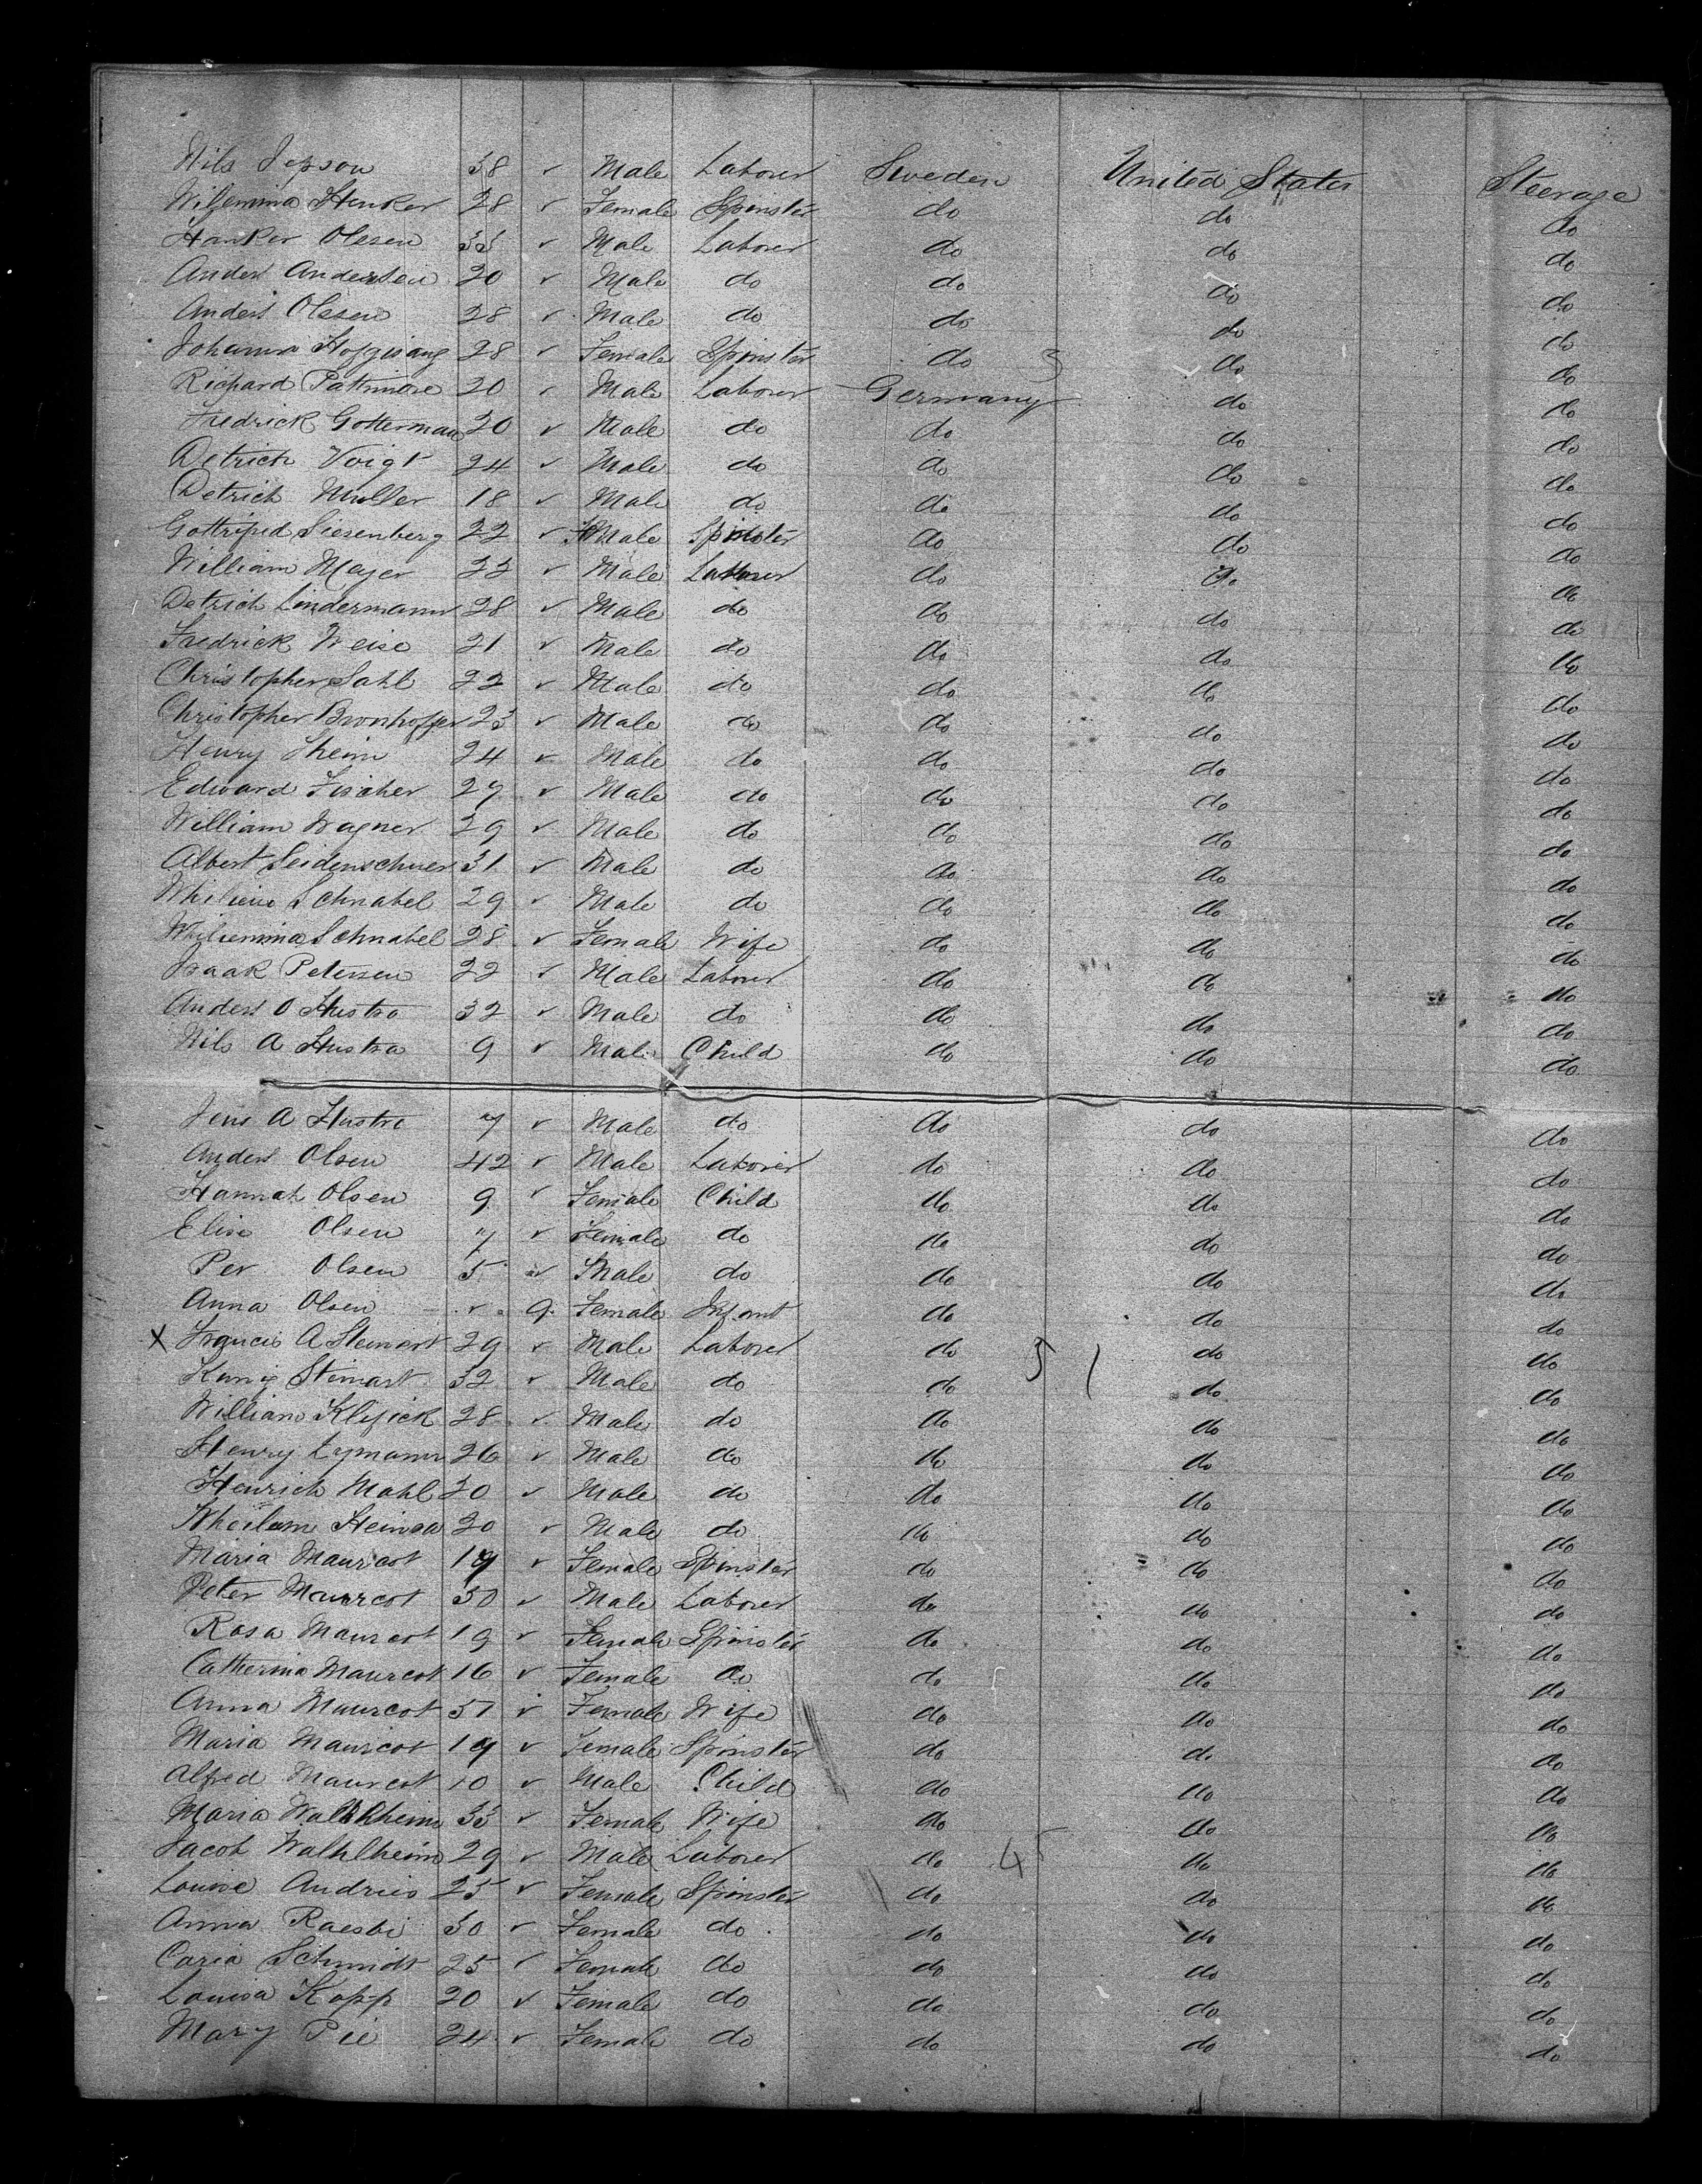 Nils Jepson 38 ✓ Male Laborer Sweden United States Steerage
Wilemina Henker 28 ✓ Female Spinster do do do
Hanker Olesen 33 ✓ Male Laborer do do do
Anders Andersen 20 ✓ Male do do do do
Anders Olesen 28 ✓ Male do do do do
Johanna 28 ✓ Female Spinster do do do
Richard Pattimore 20 ✓ Male Laborer Germany do do
Fredrick Gotterman 20 ✓ Male do do do do
Detrich Voigt 24 ✓ Male do do do do
Detrich Muller 18 ✓ Male do do do do
Gottriped Siesenberg 22 ✓ FeMale Spinster do do do
William Meyer 22 ✓ Male Laborer do do do
Detrich Lindermann 28 ✓ Male do do do do
Fredrick Weise 21 ✓ Male do do do do
Christopher Sahl 22 ✓ Male do do do do
Christopher Bronhoffer 23 ✓ Male do do do do
Henry Theim 24 ✓ Male do do do do
Edward Fischer 27 ✓ Male do do do do
William Wagner 29 ✓ Male do do do do
Albert Seidenschuer 31 ✓ Male do do do do
Schnabel 29 ✓ Male do do do do
Wiliemina Schnabel 28 ✓ Female Wife do do do
Isaak Petersen 22 ✓ Male Laborer do do do
Anders O Hustra 32 ✓ Male do do do do
Nils A Hustra 9 ✓ Male Child do do do
Jens A Hustra 7 ✓ Male do do do do
Anders Olsen 42 ✓ Male Laborer do do do
Hannah Olsen 9 ✓ Female Child do do do
Elise Olsen 7 ✓ Female do do do do
Per Olsen 5 ✓ Male do do do do
Anna Olsen ✓ 9 Female Infant do do do
X Francis A Steinart 29 ✓ Male Laborer do 5 do do
Steinart 32 ✓ Male do do do do
William Klefick 28 ✓ Male do do do do
Henry Lymann 26 ✓ Male do do do do
Henrich Mahl 20 ✓ Male do do do do
20 ✓ Male do do do do
Maria Maurcot 19 ✓ Female Spinster do do do
Peter Maurcot 50 ✓ Male Laborer do do do
Rosa Maurcot 19 ✓ Female Spinster do do do
Catherina Maurcot 16 ✓ Female do do do do
Anna Maurcot 51 ✓ Female Wife do do do
Maria Maurcot 19 ✓ Female Spinster do do do
Alfred Maurcot 10 ✓ Male Child do do do
Maria Wahlheim 33 ✓ Female Wife do do do
Jacob Wahlheim 29 ✓ Male Laborer do 45 do do
Louise Andries 25 ✓ Female Spinster do do do
Anna Raesbi 30 ✓ Female do do do do
Caria Schmidt 25 ✓ Female do do do do
Louisa Kopp 20 ✓ Female do do do do
Mary Pie 24 ✓ Female do do do do